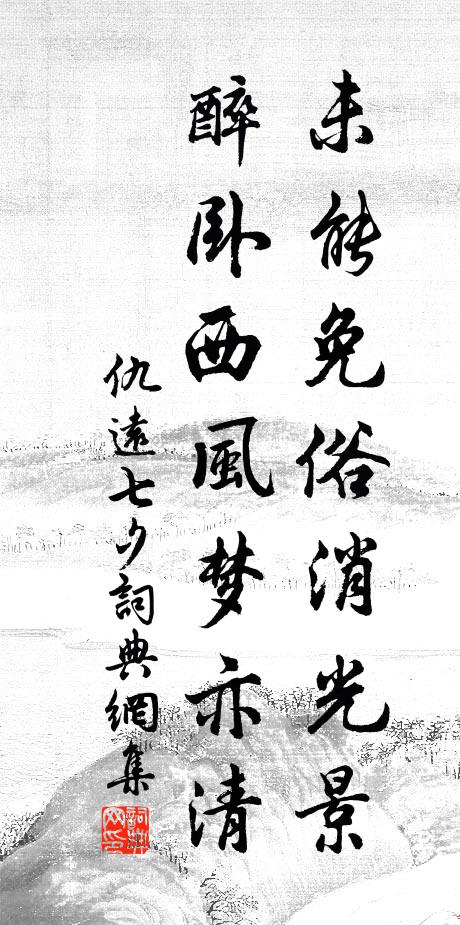 未能免俗消光景
醉卧西風梦亦清
仇遠七夕詞典網集
詞典网印